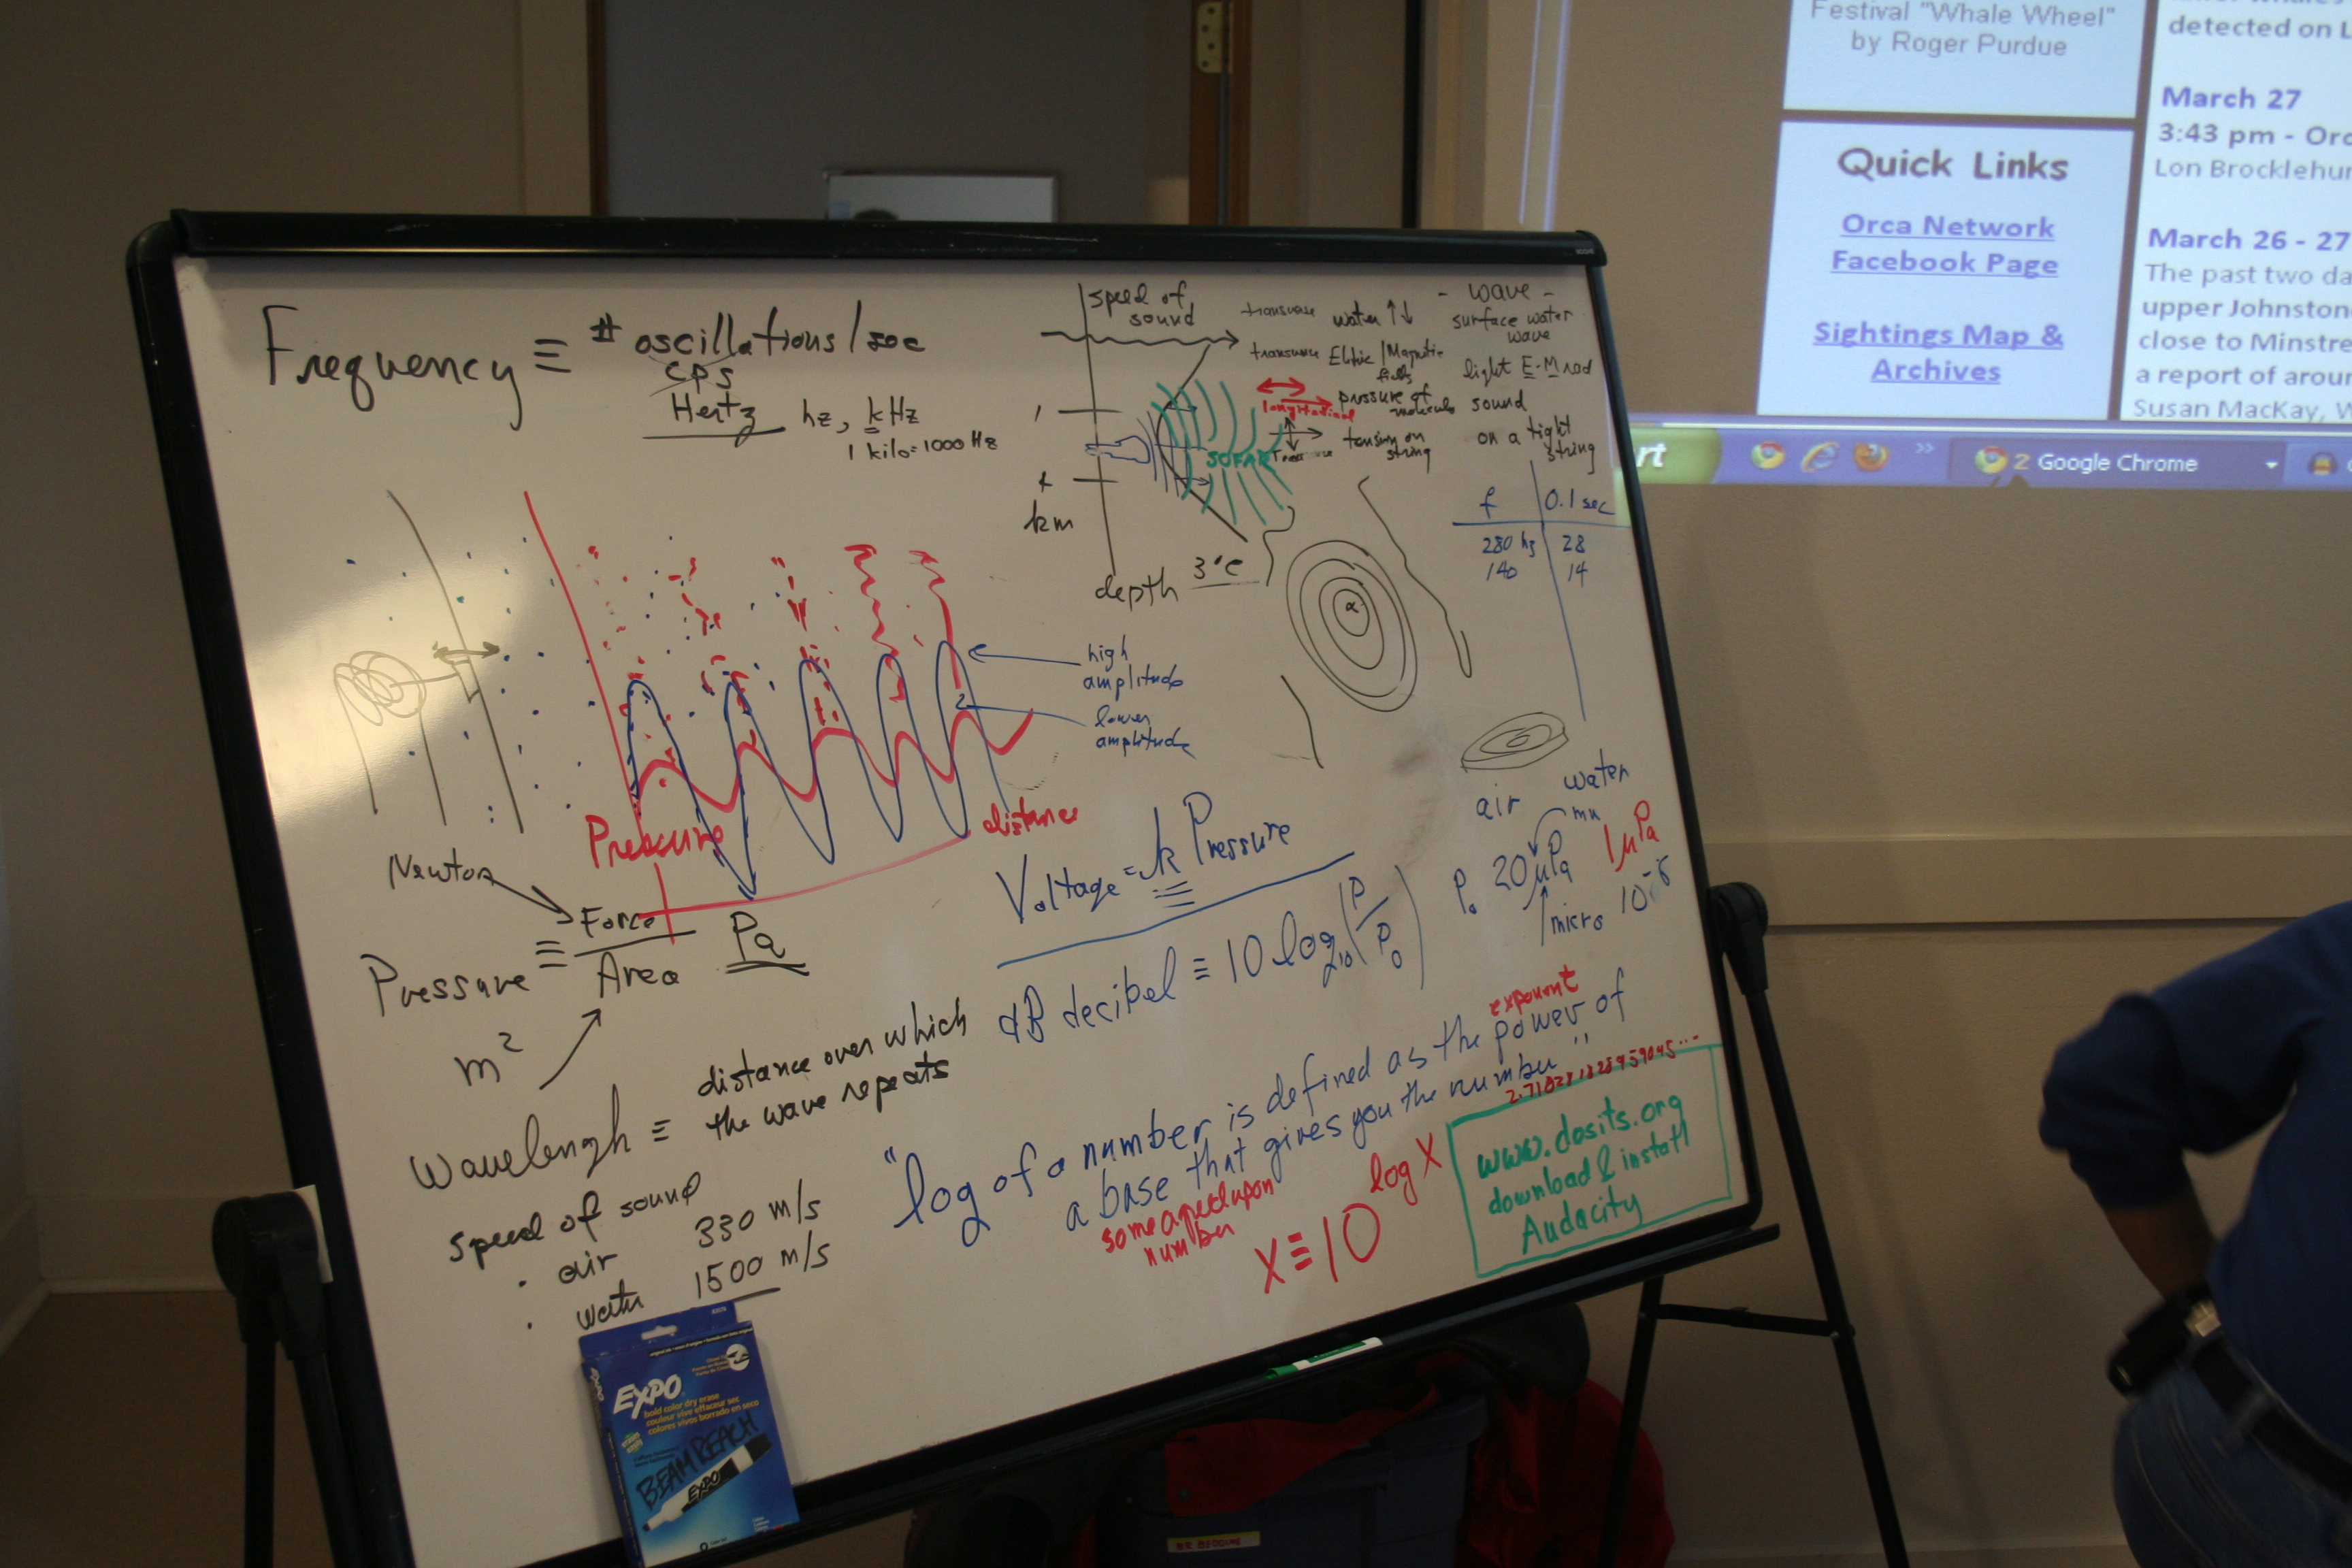 Festival "Whale Wheel"
by Roger Purdue
Quick Links
Orca Network
Facebook Page
Sightings Map &
Archives
detected on L
March 27
3:43 pm - Orc
Lon Brocklehur
March 26 - 27
The past two da
upper Johnston
close to Minstre
a report of arour
Susan MacKay, W
rt
»
2 Google Chrome
Frequency ≡ # oscillations/sec
cps
Hertz hz, kHz
1 kilo=1000 Hz
speed of
sound
1
km
depth
3°C
SOFAR
- wave -
transverse water ↑↓ surface water
wave
transverse Eletric/Magnetic
fields
light E-M rad
longitudinal pressure of
molecules
sound
tension on
string
on a tight
string
f 0.1 sec
280 hz 28
140 14
high
amplitude
lower
amplitude
Pressure
distance
Newton
Pressure ≡ Force
Area
Pa
m²
Voltage = k Pressure
air water
mu
P₀ 20 μPa 1 μPa
micro 10⁻⁶
dB decibel ≡ 10 log₁₀ (P/P₀)
Wavelengh ≡ distance over which
the wave repeats
exponent
"log of a number is defined as the power of
a base that gives you the number"
some agreed upon
number
2.718281828459045...
X ≡ 10^log X
www.dosits.org
download & install
Audacity
speed of sound
· air 330 m/s
· water 1500 m/s
EXPO
bold color dry erase
couleur vive effaceur sec
colores vivos borrado en seco
BEAM REACH
EXPO